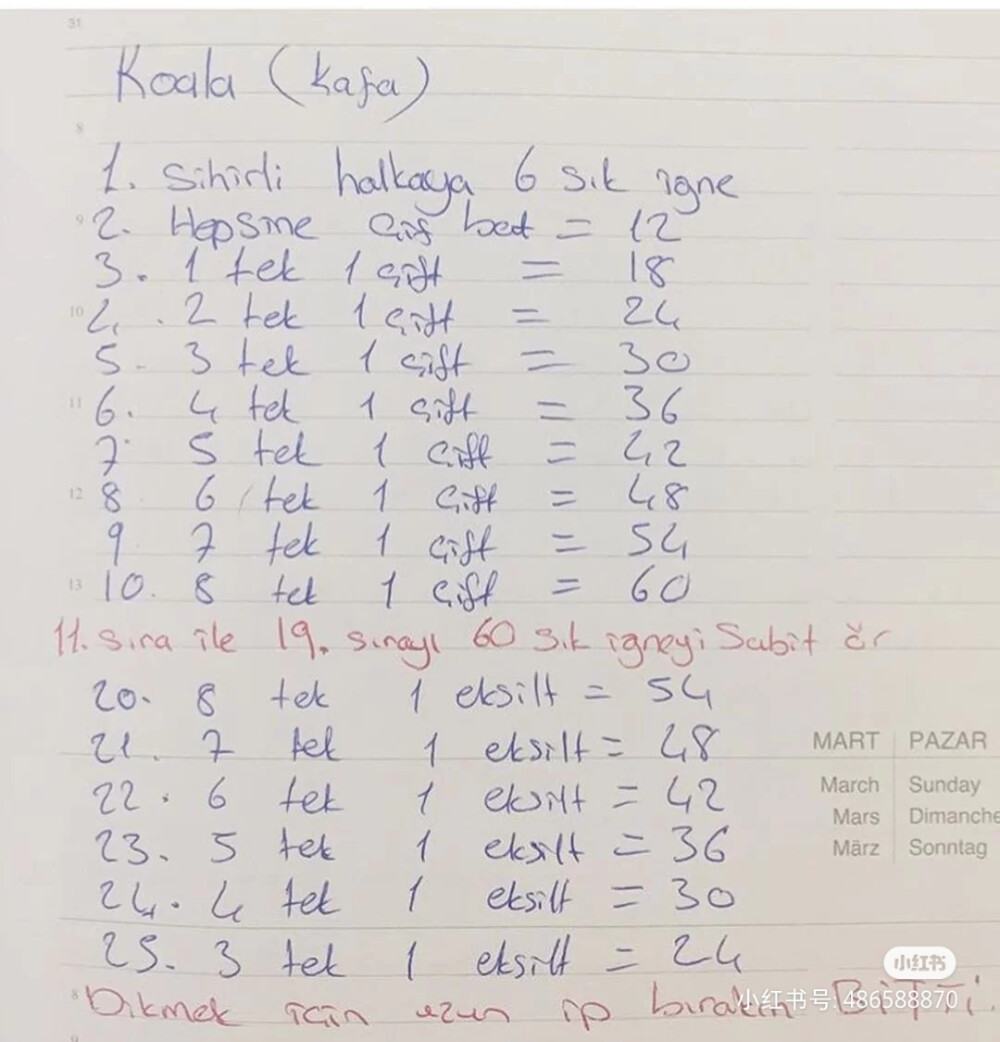 31
Koala (Kafa)
8
1. Sihirli halkaya 6 sık iğne
9 2. Hepsine çif bat = 12
3. 1 tek 1 çift = 18
10 4. 2 tek 1 çift = 24
5. 3 tek 1 çift = 30
11 6. 4 tek 1 çift = 36
7 5 tek 1 çift = 42
12 8 6 tek 1 çift = 48
9 7 tek 1 çift = 54
13 10. 8 tek 1 çift = 60
11. sıra ile 19. sırayı 60 sık iğneyi Sabit ör
20. 8 tek 1 eksilt = 54
21. 7 tek 1 eksilt = 48
MART PAZAR
22. 6 tek 1 eksilt = 42
March Sunday
Mars Dimanche
23. 5 tek 1 eksilt = 36
März Sonntag
24. 4 tek 1 eksilt = 30
25. 3 tek 1 eksilt = 24
小红书
8 Dikmek için uzun ip bırakın BİTTİ.
小红书号: 486588870
9